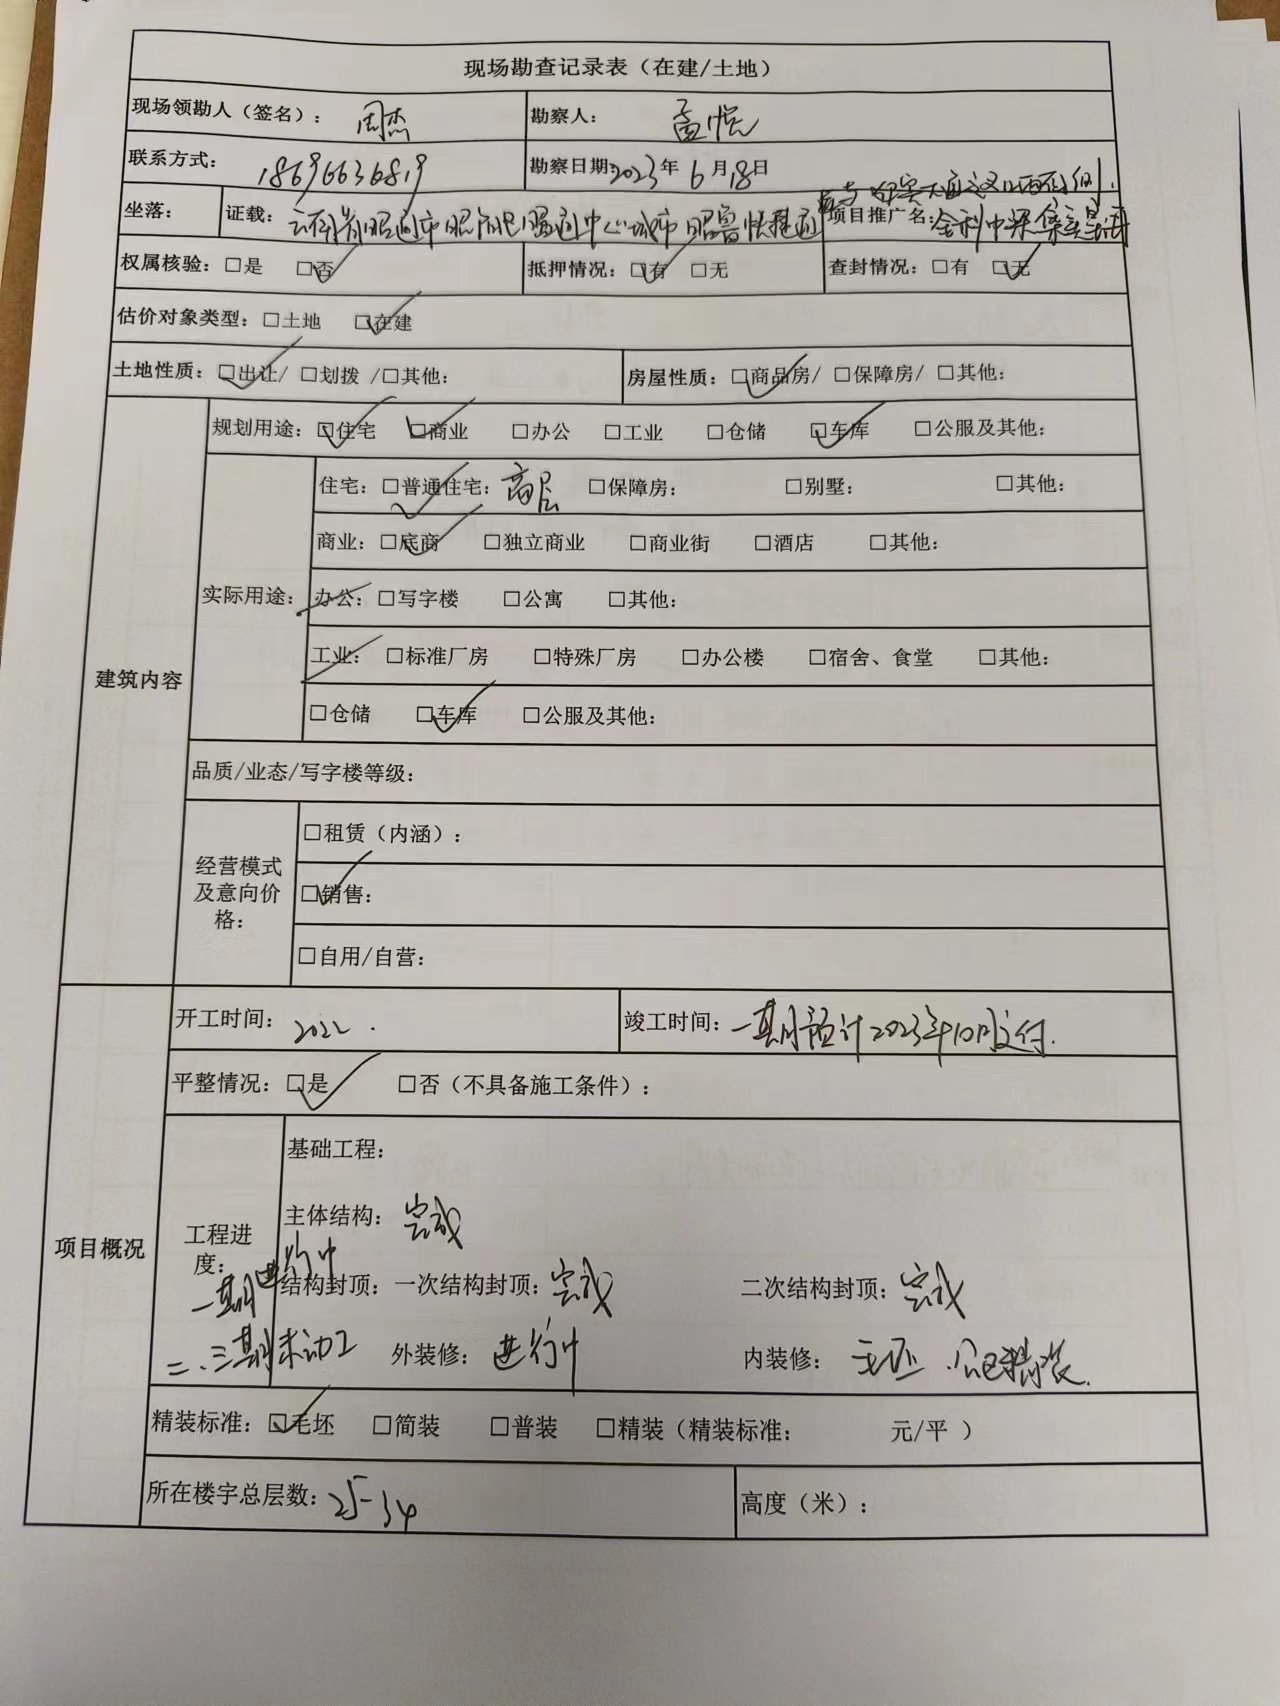 现场勘查记录表（在建/土地）
现场领勘人（签名）： 周杰 勘察人： 孟悦
联系方式： 18696636819 勘察日期:2023年 6月18日
坐落： 证载： 云南省昭通市昭阳区昭通中心城市昭鲁快捷通 项目推广名:金科中梁
大道交叉口西南侧.
权属核验：□是 □否 抵押情况：□有 □无 查封情况：□有 □无
估价对象类型：□土地 □在建
土地性质：□出让/ □划拨 /□其他: 房屋性质：□商品房/ □保障房/ □其他:
建筑内容
规划用途：□住宅 □商业 □办公 □工业 □仓储 □车库 □公服及其他:
实际用途:
住宅: □普通住宅: 高层 □保障房: □别墅: □其他:
商业: □底商 □独立商业 □商业街 □酒店 □其他:
办公: □写字楼 □公寓 □其他:
工业: □标准厂房 □特殊厂房 □办公楼 □宿舍、食堂 □其他:
□仓储 □车库 □公服及其他:
品质/业态/写字楼等级:
经营模式
及意向价
格:
□租赁（内涵）:
□销售:
□自用/自营:
项目概况
开工时间: 2022. 竣工时间: 一期预计2023年10月交付.
平整情况: □是 □否（不具备施工条件）:
工程进
度:
一期进行中
二.三期未动工
基础工程:
主体结构: 完成
结构封顶: 一次结构封顶: 完成 二次结构封顶: 完成
外装修: 进行中 内装修: 毛坯.公区精装.
精装标准: □毛坯 □简装 □普装 □精装（精装标准: 元/平 ）
所在楼宇总层数: 25-34 高度（米）: